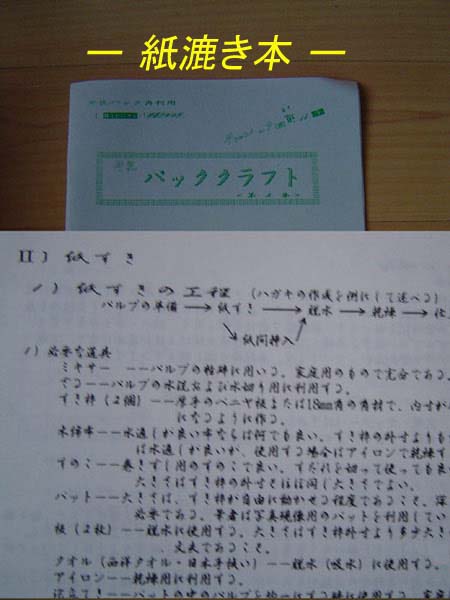 ― 紙漉き本 ―
牛乳パック再利用
パッククラフト
II) 紙すき
1) 紙すきの工程 (ハガキの作成を例にして述べる)
パルプの準備 → 紙すき → 脱水 → 乾燥 → 仕
紙間挿入
1) 必要な道具
ミキサー ――パルプの粉砕に用いる。家庭用のもので充分である
ざる――パルプの水洗および水切り用に利用する。
すき枠 (2個) ――厚手のベニヤ板または18mm角の角材で、内寸が
になるように作る。
木綿布――水通しが良い布ならば何でも良い。すき枠の外寸よりも
は水通しが良いが、使用する場合はアイロンで乾燥す
すのこ――巻きずし用のすのこで良い。すだれを切って使っても良
大きさはすき枠の外寸とほぼ同じ大きさでよい。
バット――大きさは、すき枠が自由に動かせる程度であること。深
必要である。筆者は写真現像用のバットを利用してい
板 (2枚) ――脱水に使用する。大きさはすき枠外寸より多少大き
丈夫であること。
タオル (西洋タオル・日本手拭い) ――脱水 (吸水) に使用する。
アイロン――乾燥用に利用する。
泡立てき――バットの中のパルプを均一にする時に使用する。家庭